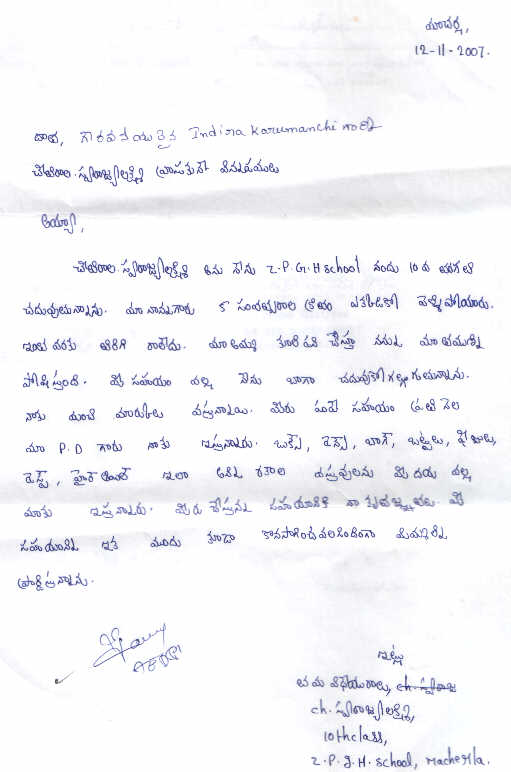 మాచర్ల,
12-11-2007.
దాత, గౌరవనీయులైన Indira Karumanchi గారికి
స్వరాజ్యలక్ష్మి వ్రాసుకునే విన్నపములు
అయ్యా,
స్వరాజ్యలక్ష్మి అను నేను Z.P.G.H School నందు 10 వ తరగతి
చదువుతున్నాను. మా నాన్నగారు 5 సంవత్సరాల క్రితం ఎక్కడికో వెళ్ళిపోయారు.
ఇంత వరకు తిరిగి రాలేదు. మా అమ్మ కూలి పని చేస్తూ నన్ను, మా తమ్ముణ్ణి
పోషిస్తుంది. మీ సహాయం వల్ల నేను బాగా చదువుకో గల్గుతున్నాను.
నాకు మంచి మార్కులు వస్తున్నాయి. మీరు పంపే సహాయం ప్రతి నెల
మా P.D గారు నాకు ఇస్తున్నారు. బుక్స్, డ్రెస్స్, బ్యాగ్, బట్టలు, ఫీజులు,
ఇలా అనేక రకాల వస్తువులను మీ దయ వల్ల
మాకు ఇస్తున్నారు. మీరు చేస్తున్న సహాయానికి నా కృతజ్ఞతలు. మీ
సహాయాన్ని ఇక ముందు కూడా కొనసాగించవలసిందిగా మిమ్మల్ని
ప్రార్థిస్తున్నాను.
ఇట్లు
తమ విధేయురాలు,
ch. స్వరాజ్యలక్ష్మి,
10th class,
Z.P.G.H. School, Macherla.